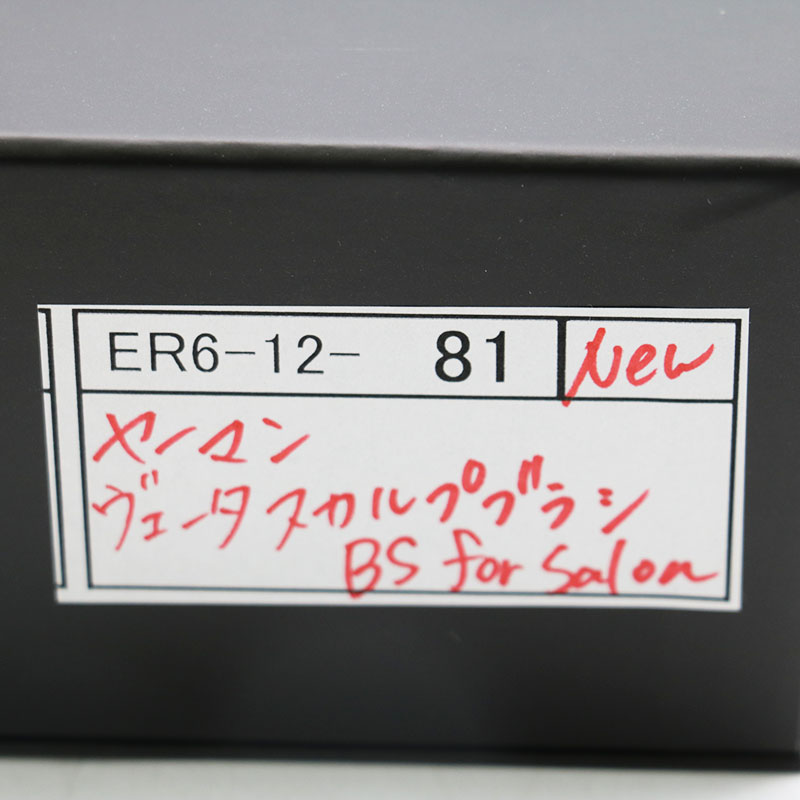 ER6-12- 81 New
ヤーマン
ヴェータスカルプブラシ
BS for Salon